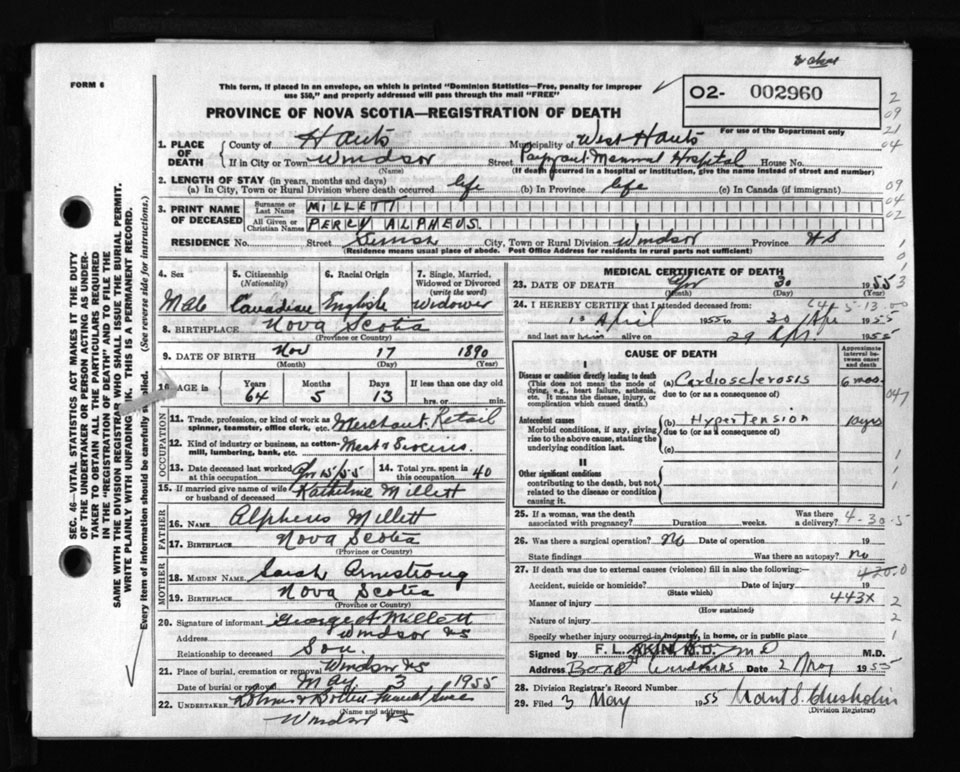 FORM 6
This form, if placed in an envelope, on which is printed "Dominion Statistics—Free, penalty for improper
use $50," and properly addressed will pass through the mail "FREE"
PROVINCE OF NOVA SCOTIA—REGISTRATION OF DEATH
O2- 002960
For use of the Department only
2
09
21
04
1. PLACE OF DEATH
County of Hants Municipality of West Hants
If in City or Town Windsor Street Payzant Memorial Hospital House No.
(Name) (If death occurred in a hospital or institution, give the name instead of street and number)
2. LENGTH OF STAY (in years, months and days)
(a) In City, Town or Rural Division where death occurred life (b) In Province life (c) In Canada (if immigrant)
09
04
02
3. PRINT NAME OF DECEASED
Surname or Last Name MILLETT
All Given or Christian Names PERCY ALPHEUS.
RESIDENCE No. Street City, Town or Rural Division Windsor Province NS
(Residence means usual place of abode. Post Office Address for residents in rural parts not sufficient)
4. Sex Male
5. Citizenship (Nationality) Canadian
6. Racial Origin English
7. Single, Married, Widowed or Divorced (write the word) Widower
8. BIRTHPLACE Nova Scotia
(Province or Country)
9. DATE OF BIRTH Nov 17 1890
(Month) (Day) (Year)
10. AGE in Years Months Days If less than one day old
64 5 13 hrs. or min.
OCCUPATION
11. Trade, profession, or kind of work as spinner, teamster, office clerk, etc. Merchant. Retail
12. Kind of industry or business, as cotton-mill, lumbering, bank, etc. Meat & Groceries
13. Date deceased last worked at this occupation Apr 15/55
14. Total yrs. spent in this occupation 40
15. If married give name of wife or husband of deceased Millett
FATHER
16. NAME Alpheus Millett
17. BIRTHPLACE Nova Scotia
(Province or Country)
MOTHER
18. MAIDEN NAME Sarah Armstrong
19. BIRTHPLACE Nova Scotia
(Province or Country)
20. Signature of informant George A Millett
Address Windsor NS
Relationship to deceased Son.
21. Place of burial, cremation or removal Windsor NS
Date of burial or removal May 3 1955
22. UNDERTAKER
Windsor NS
(Name and address)
MEDICAL CERTIFICATE OF DEATH
23. DATE OF DEATH Apr 30 1955
(Month) (Day) (Year)
24. I HEREBY CERTIFY that I attended deceased from:
1 April 1955 to 30 Apr 1955
and last saw him alive on 29 Apr. 1955
CAUSE OF DEATH
Approximate interval between onset and death
I
Disease or condition directly leading to death
(This does not mean the mode of dying, e.g., heart failure, asthenia, etc. It means the disease, injury, or complication which caused death.)
(a) Cardiosclerosis 6 mos.
due to (or as a consequence of)
Antecedent causes
Morbid conditions, if any, giving rise to the above cause, stating the underlying condition last.
(b) Hypertension 10 yrs
due to (or as a consequence of)
(c)
II
Other significant conditions
contributing to the death, but not related to the disease or condition causing it.
25. If a woman, was the death associated with pregnancy? Duration weeks. Was there a delivery?
4-30-5
26. Was there a surgical operation? No Date of operation 19
State findings Was there an autopsy? No
27. If death was due to external causes (violence) fill in also the following:— 420.0
Accident, suicide or homicide? Date of injury 19
(State which)
443X
Manner of injury
(How sustained)
Nature of injury
Specify whether injury occurred in industry, in home, or in public place
Signed by F. L. AKIN, M.D. M.D.
Address Box Date 2 May 1955
28. Division Registrar's Record Number
29. Filed 3 May 1955 Grant S. Chisholm
(Division Registrar)
SEC. 46—VITAL STATISTICS ACT MAKES IT THE DUTY
OF THE UNDERTAKER OR PERSON ACTING AS UNDER-
TAKER TO OBTAIN ALL THE PARTICULARS REQUIRED
IN THE "REGISTRATION OF DEATH" AND TO FILE THE
SAME WITH THE DIVISION REGISTRAR WHO SHALL ISSUE THE BURIAL PERMIT.
WRITE PLAINLY WITH UNFADING INK. THIS IS A PERMANENT RECORD.
Every item of information should be carefully supplied. (See reverse side for instructions.)